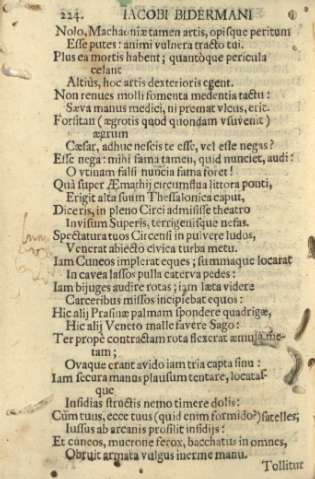 224. IACOBI BIDERMANI
Nolo, Machaoniæ tamen artis, opisque peritum
Esse putes: animi vulnera tracto tui.
Plus ea mortis habent; quantòque pericula
celant
Altiùs, hoc artis dexterioris egent.
Non renues molli fomenta medentia tactu:
Sæva manus medici, ni premat vlcus, erit.
Forsitan (ægrotis quod quondam vsuvenit)
ægrum
Cæsar, adhuc nescis te esse, vel esse negas?
Esse nega: mihi fama tamen, quid nunciet, audi:
O vtinam falsi nuncia fama foret!
Quà super Æmathij circumflua littora ponti,
Erigit alta suum Thessalonica caput,
Diceris, in pleno Circi admisisse theatro
Invisum Superîs, terrigenisque nefas.
Spectatura tuos Circensi in pulvere ludos,
Venerat abiecto civica turba metu.
Iam Cuneos implerat eques; summaque locarat
In cavea lassos pulla caterva pedes:
Iam bijuges audire rotas; iam læta videre
Carceribus missos incipiebat equos:
Hic alij Prasinæ palmam spondere quadrigæ,
Hic alij Veneto malle favere Sago:
Ter propè contractam rota flexerat æmula me-
tam;
Ovaque erant avido iam tria capta sinu:
Iam secura manus plausum tentare, locatas-
que
Insidias structis nemo timere dolis:
Cùm tuus, ecce tuus (quid enim formido?) satelles,
Iussus ab arcanis prosilit insidijs:
Et cuneos, mucrone ferox, bacchatus in omnes,
Obruit armata vulgus inerme manu.
Tollitut